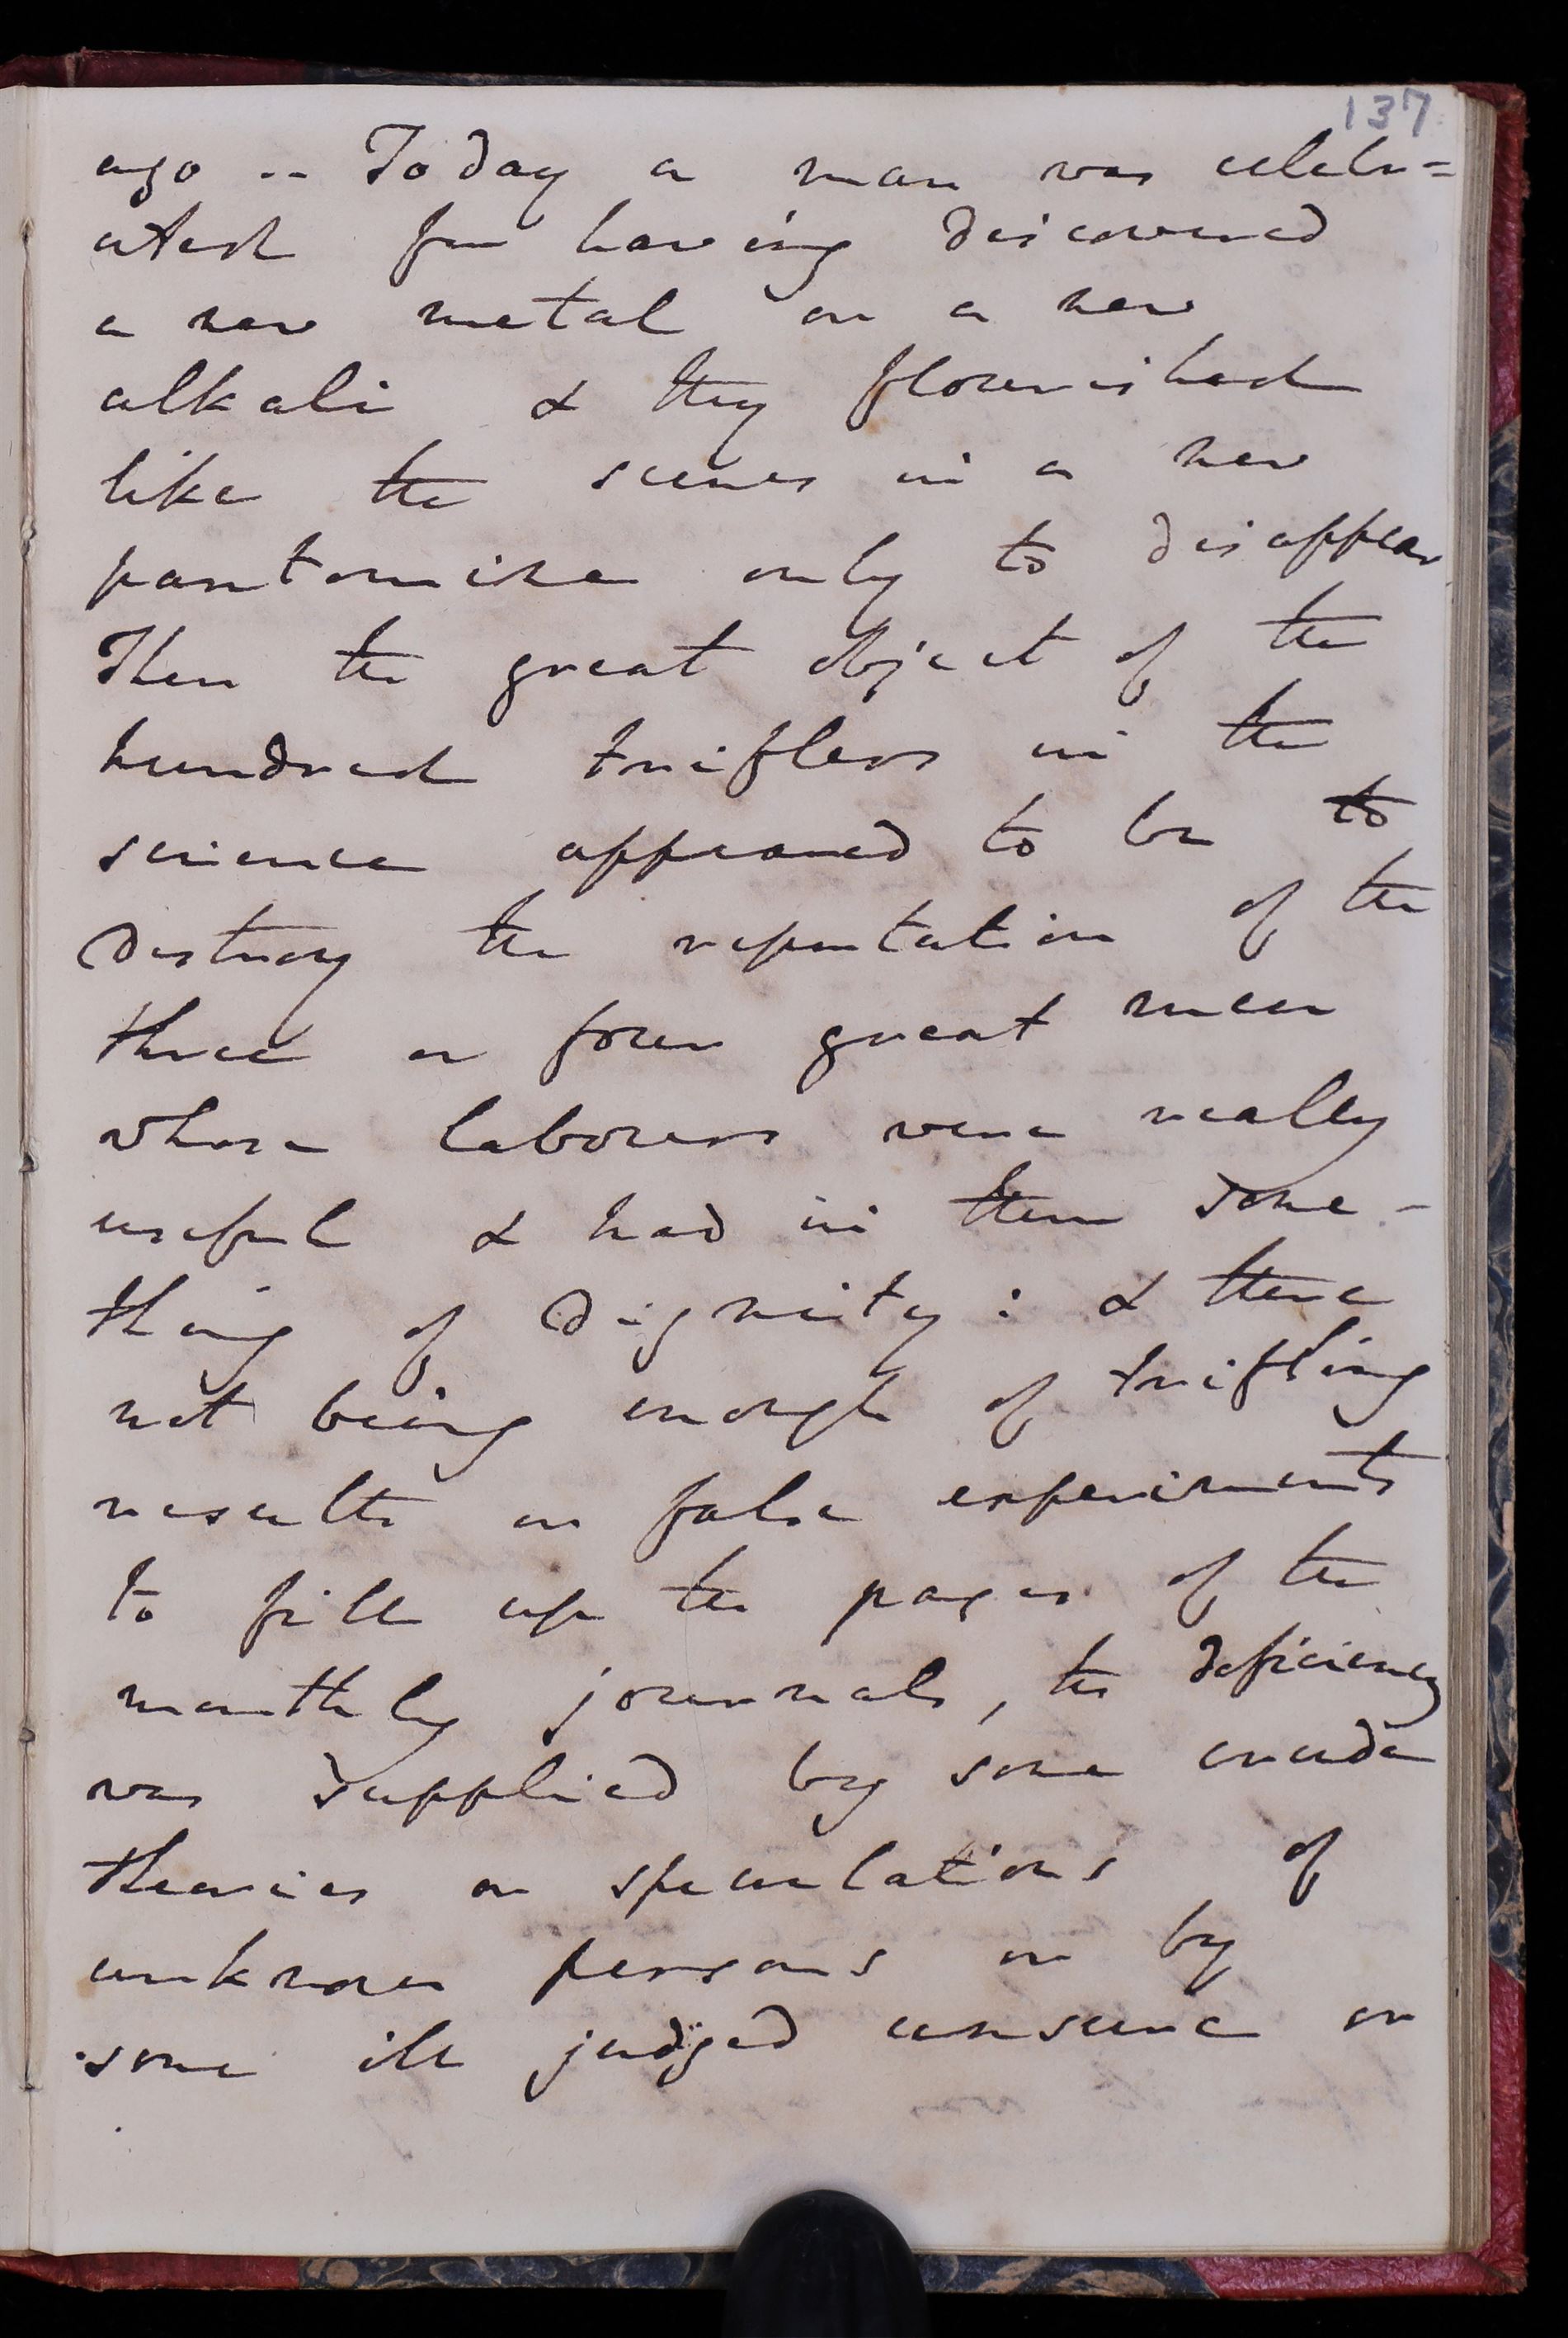 137
ago -- To day a man was celebr=
ated for having discovered
a new metal or a new
alkali & they flourished
like the scenes in a new
pantomime only to disappear
Then the great object of the
hundred triflers in the
science appeared to be to
destroy the reputation of the
three or four great men
whose labours were really
useful & had in them some-
thing of dignity: & there
not being enough of trifling
results or false experiments
to fill up the pages of the
monthly journals, the deficiency
was supplied by some crude
theories or speculations of
unknown persons or by
some ill judged censure or